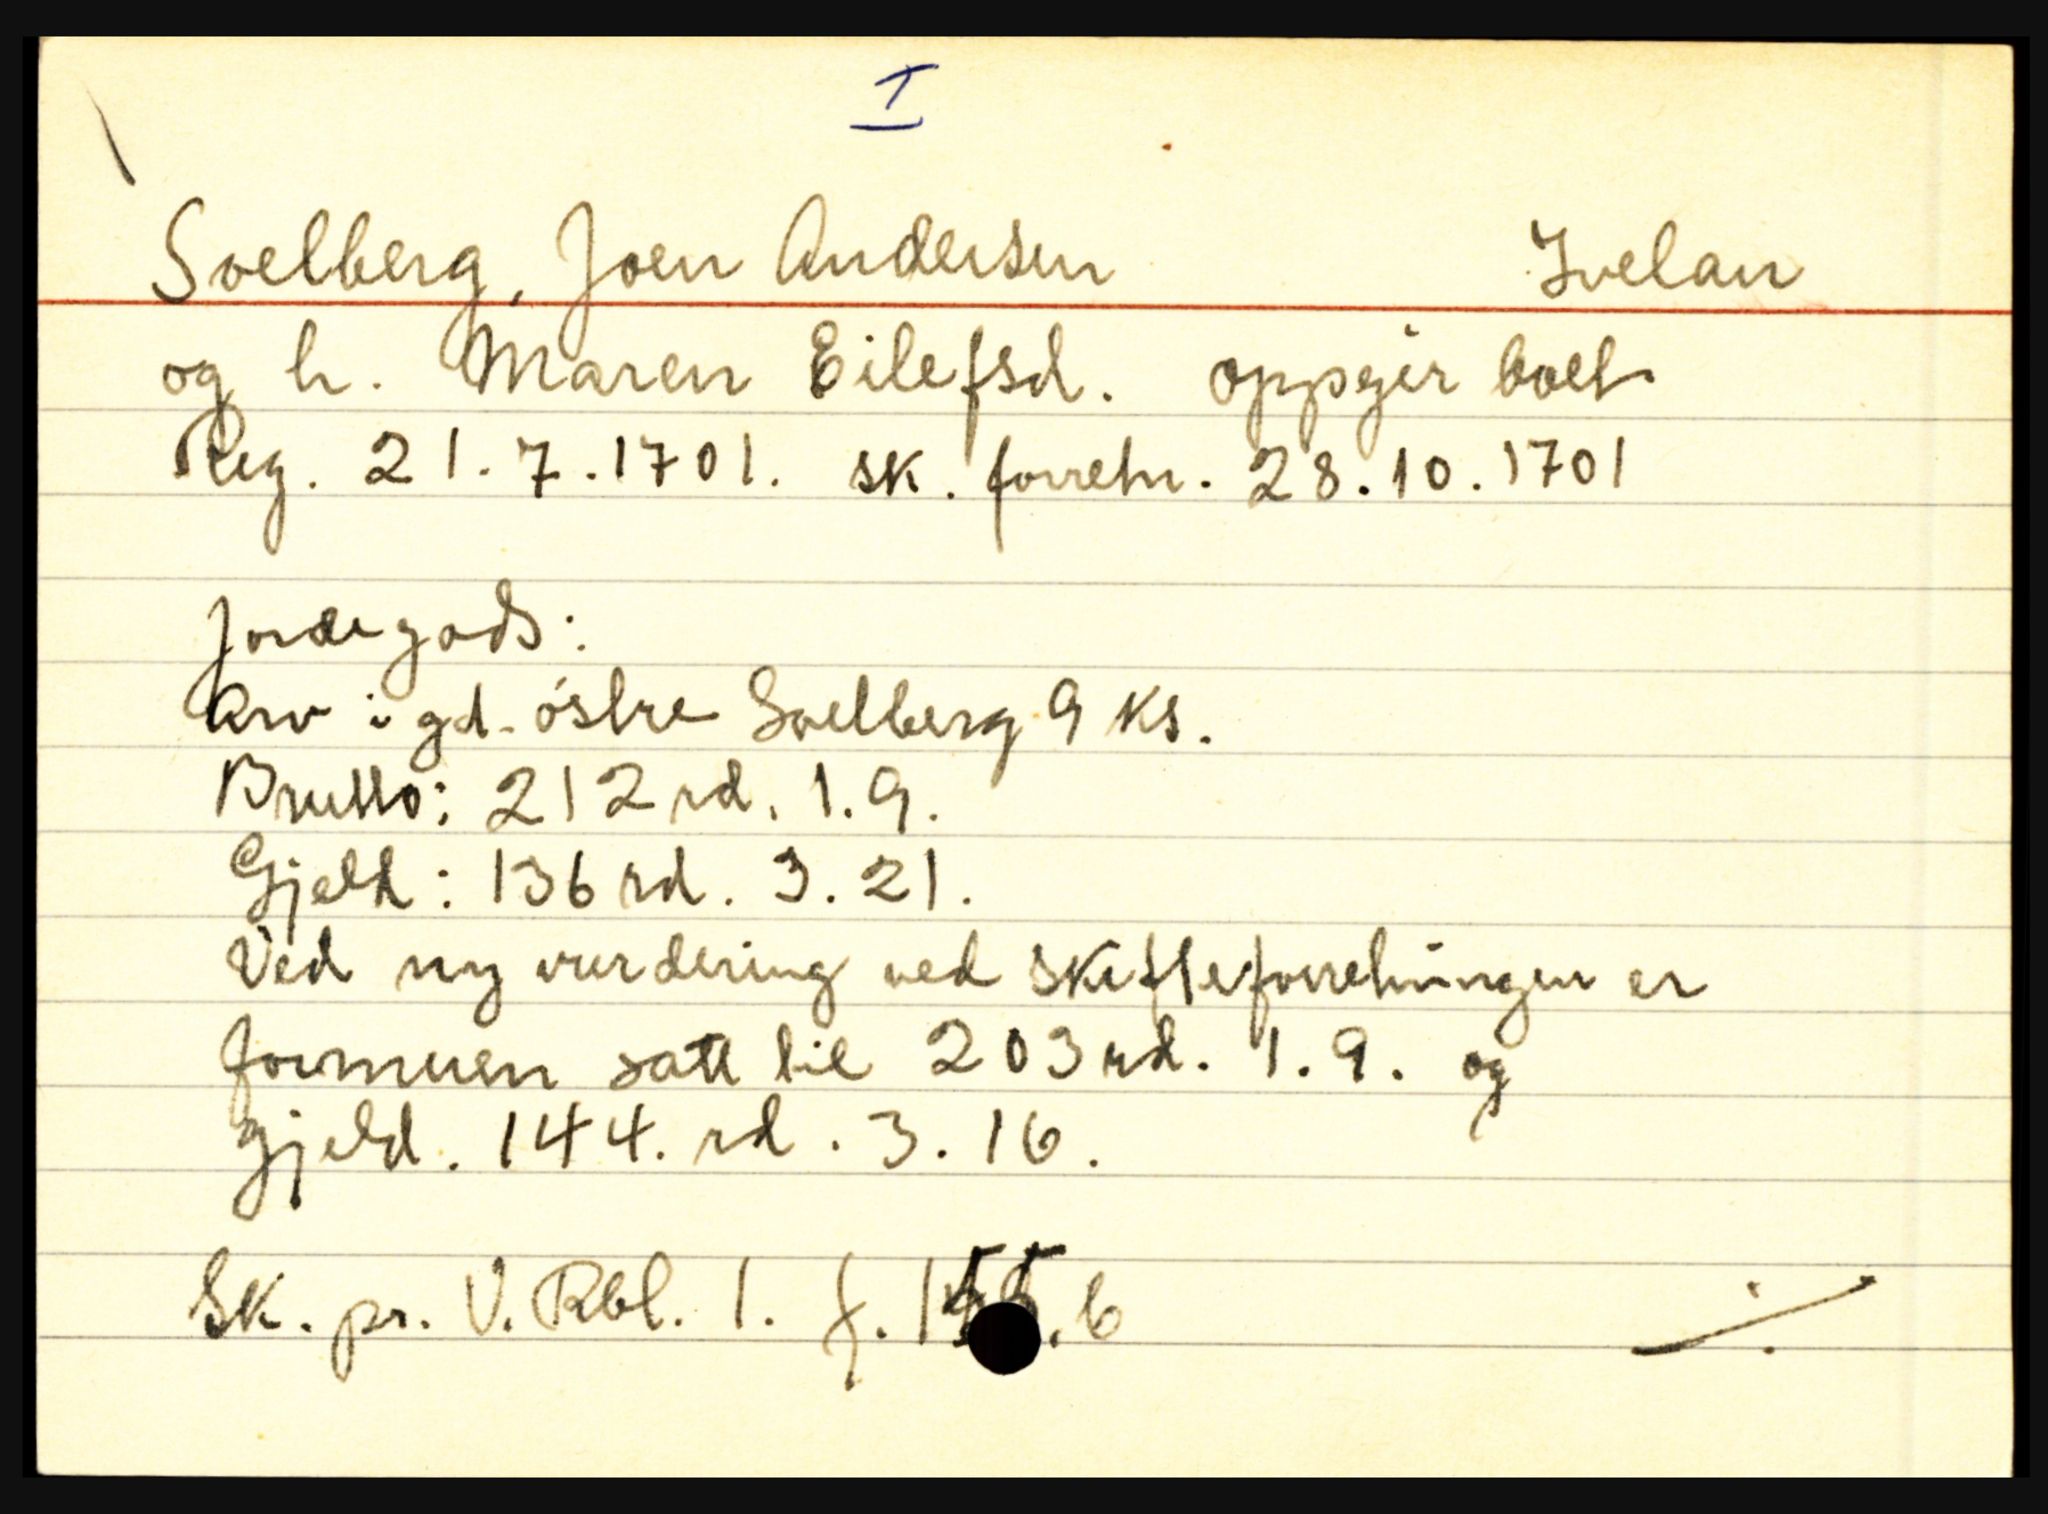 I
Solberg, Joen Andersen Ivelan
og h. Maren Eilefsd. oppgir boet
Reg. 21.7.1701. sk. forretn. 28.10.1701
Jordegods:
Arv i gd. østre Solberg 9 ks.
Brutto: 212 rd. 1.9.
Gjeld: 136 rd. 3.21.
Ved ny vurdering ved skifteforretningen er
formuen satt til 203 rd. 1.9. og
gjeld. 144. rd. 3.16.
Sk. pr. V. Rbl. 1. f. 155.b